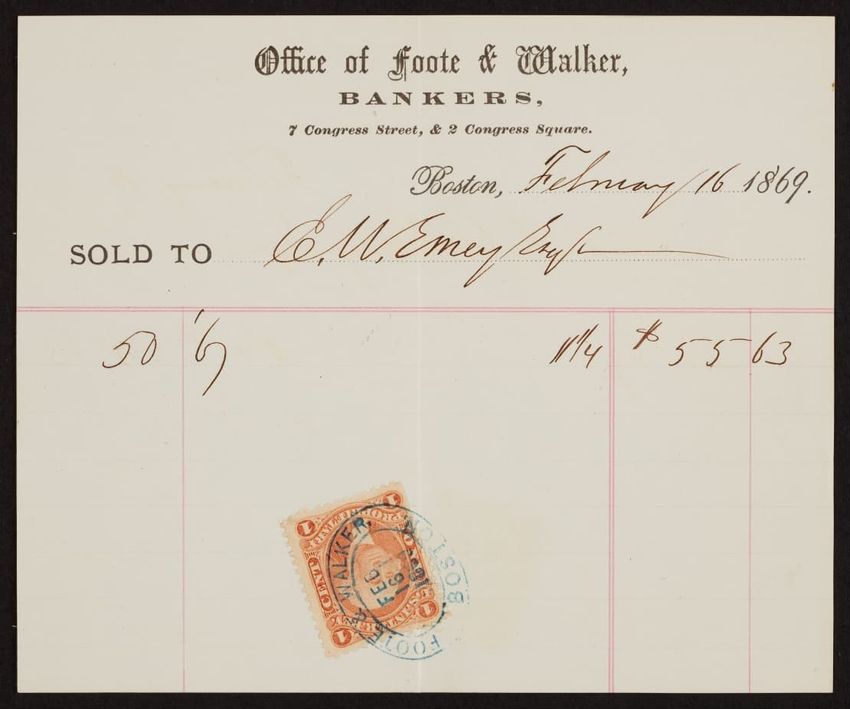 Office of Foote & Walker,
BANKERS,
7 Congress Street, & 2 Congress Square.
Boston, February 16 1869.
SOLD TO E. W. Emery Esq
50 '67 11 1/4 $ 55 63
1 1
1 1
CENT
FOOTE & WALKER.
BOSTON
FEB
16
1869